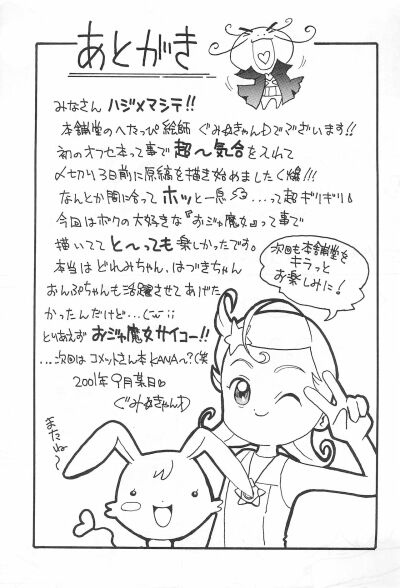 あとがき
みなさん ハジメマシテ!!
本舗堂のへたっぴ絵師 ぐみきゃんDでございます!!
初のオフセ本って事で 超〜気合を入れて
〆切り3日前に原稿を描き始めました(爆!!
なんとか間に合って ホッと一息 ...って超ギリギリ!
今回はボクの大好きな『おジャ魔女』って事で
描いてて と〜っても 楽しかったです。
本当は どれみちゃん、はづきちゃん
おんぷちゃんも活躍させてあげた
かったんだけど…
とりあえず おジャ魔女サイコー!!
...次回は コメットさん本KANA〜?(笑
2001年9月某日
ぐみきゃんD
次回も本舗堂を
キラっと
お楽しみに!
またね〜